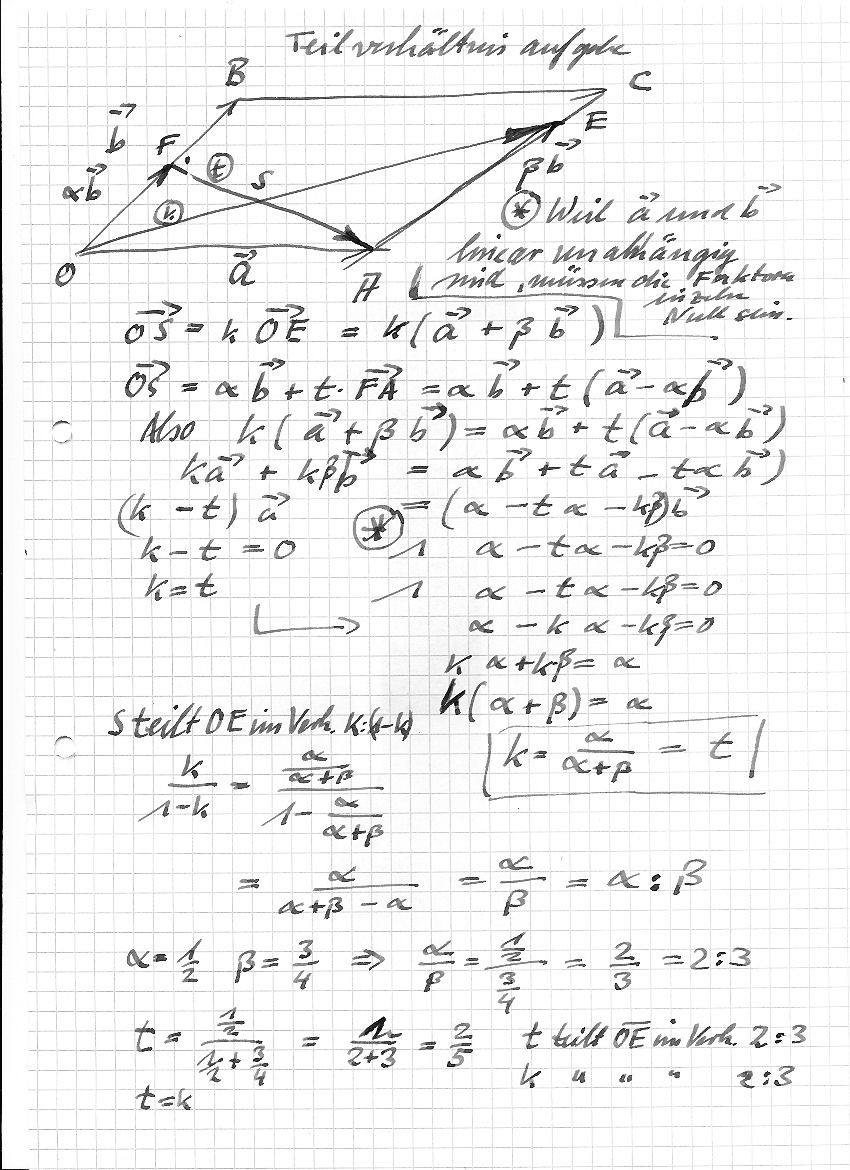 Teilverhältnisaufgabe
B
C
b⃗
F
t
E
αb⃗
S
βb⃗
k
* Weil a⃗ und b⃗
O
a⃗
A
linear unabhängig
sind, müssen die Faktoren
einzeln
Null sein.
OS⃗ = k OE⃗ = k(a⃗ + β b⃗)
OS⃗ = α b⃗ + t · FA⃗ = α b⃗ + t (a⃗ - αb⃗)
Also k(a⃗ + β b⃗) = αb⃗ + t(a⃗ - αb⃗)
ka⃗ + kβb⃗ = α b⃗ + t a⃗ - tα b⃗)
(k - t) a⃗ = (α - t α - kβ)b⃗
k - t = 0 * ∧ α - tα - kβ = 0
k = t ∧ α - tα - kβ = 0
α - k α - kβ = 0
k α + kβ = α
k(α + β) = α
S teilt OE im Verh. k:(1-k)
k = α/(α+β) = t
k/(1-k) = (α/(α+β))/(1 - α/(α+β))
= α/(α+β-α) = α/β = α : β
α = 1/2 β = 3/4 ⇒ α/β = (1/2)/(3/4) = 2/3 = 2:3
t = (1/2)/(1/2 + 3/4) = 2/(2+3) = 2/5 t teilt OE im Verh. 2:3
k " " " 2:3
t = k